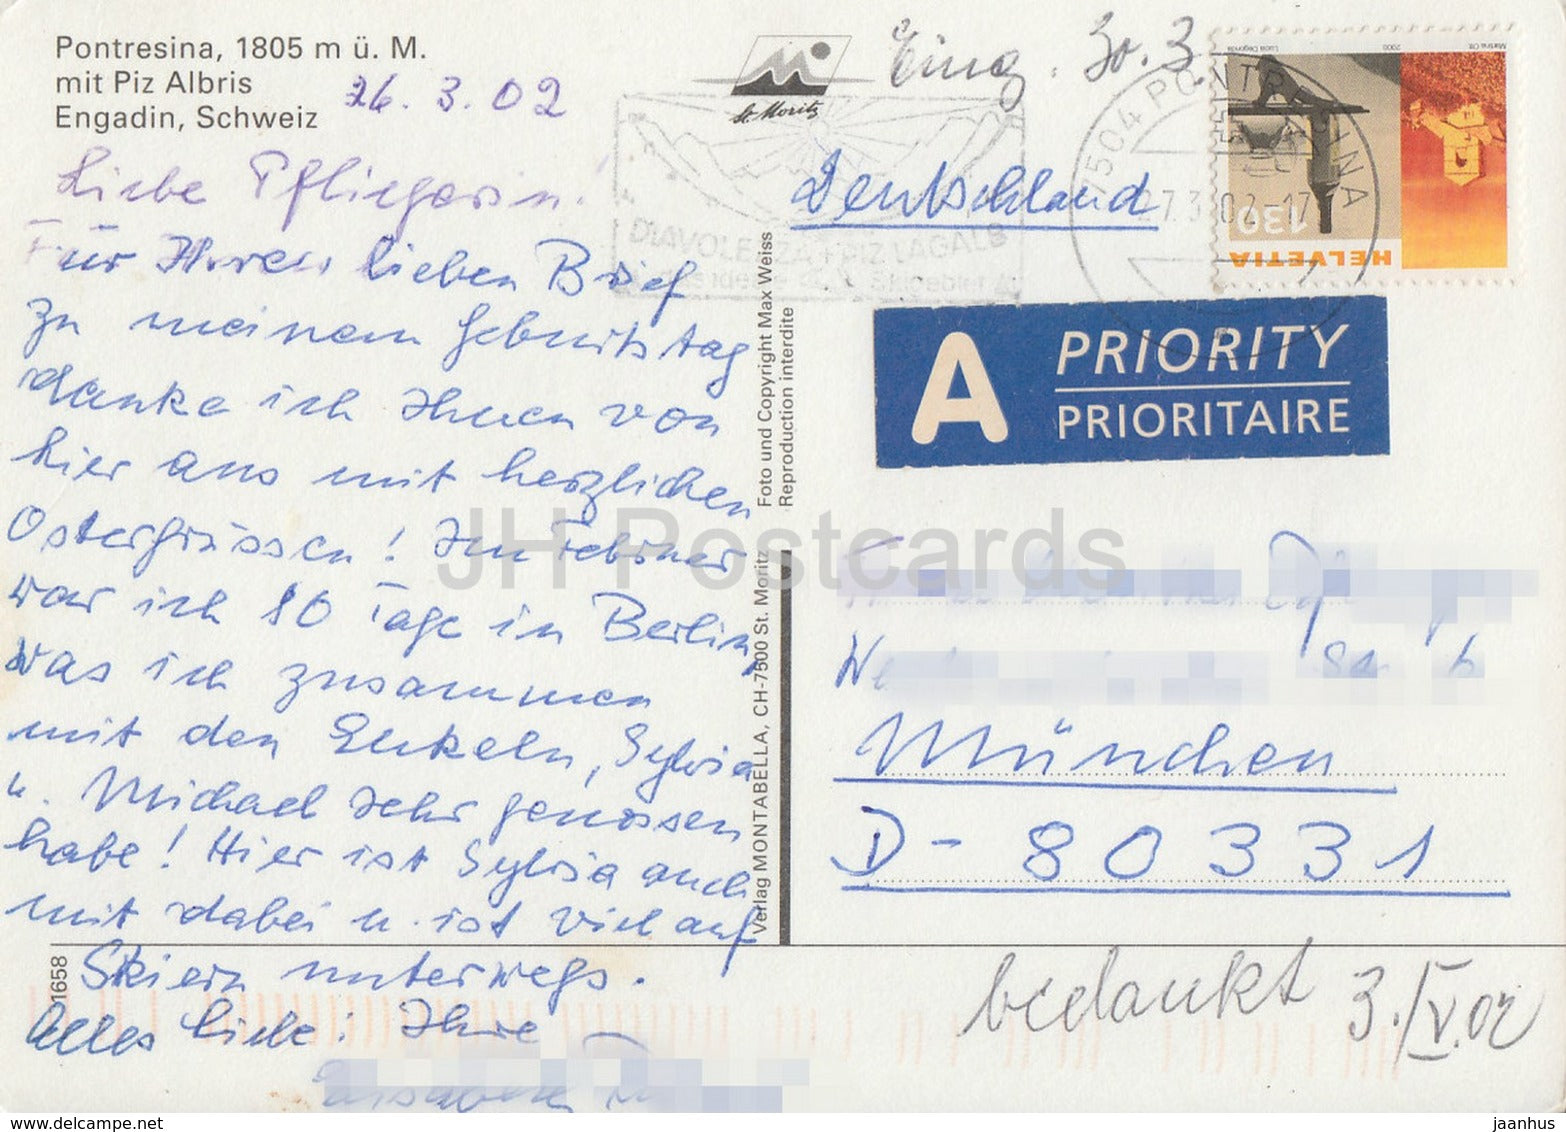 Pontresina, 1805 m ü. M.
mit Piz Albris
Engadin, Schweiz
26. 3. 02
St. Moritz
Eing. 30. 3
Liebe Pfliegerin!
Für Ihren lieben Brief
zu meinem Geburtstag
danke ich Ihnen von
hier aus mit herzlichen
Ostergrüssen! Im Februar
war ich 10 Tage in Berlin,
was ich zusammen
mit den Enkeln, Sylvia
u. Michael sehr genossen
habe! Hier ist Sylvia auch
mit dabei u. ist viel auf
Skiern unterwegs.
Alles Liebe: Ihre
1658
Foto und Copyright Max Weiss
Reproduction interdite
Verlag MONTABELLA, CH-7500 St. Moritz
DIAVOLEZZA + PIZ LAGALB
7504 PONTRESINA
27.3.02-17
Martina Ott
2000
Lucia Degonda
130
HELVETIA
Deutschland
A
PRIORITY
PRIORITAIRE
München
D-80331
bedankt 3./IV.02
JH Postcards
delcampe.net
jaanhus